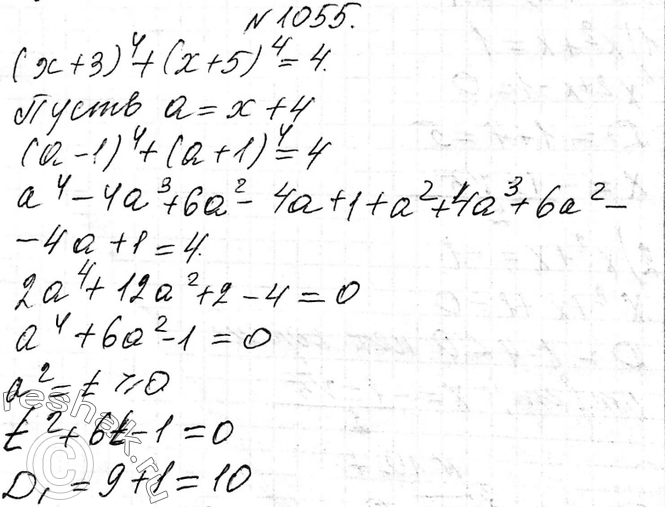 №1055.
(x+3)⁴+(x+5)⁴=4.
Пусть a=x+4
(a-1)⁴+(a+1)⁴=4
a⁴-4a³+6a²-4a+1+a²+4a³+6a²-
-4a+1=4.
2a⁴+12a²+2-4=0
a⁴+6a²-1=0
a²=t⩾0
t²+6t-1=0
D₁=9+1=10